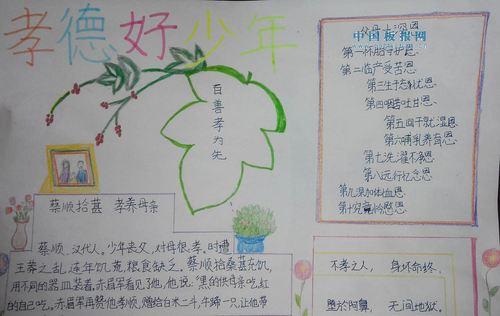 孝德好少年
百善孝为先
父母十恩
中国板报网
第一怀胎守护恩
第二临产受苦恩
第三生子忘忧恩
第四咽苦吐甘恩
第五回干就湿恩
第六哺乳养育恩
第七洗濯不净恩
第八远行忆念恩
第九深加体恤恩
第十究竟怜愍恩
蔡顺拾葚 孝养母亲
蔡顺、汉代人。少年丧父,对母很孝。时遭
王莽之乱,连年饥荒,粮食缺乏。蔡顺拾桑葚充饥,
用不同的器皿装着。赤眉军看见了他,他说:"黑的供母亲吃,红
的自己吃。"赤眉军再赞他孝顺,赠给白米二斗,牛蹄一只,让他带
不孝之人, 身坏命终,
堕於阿鼻, 无间地狱。